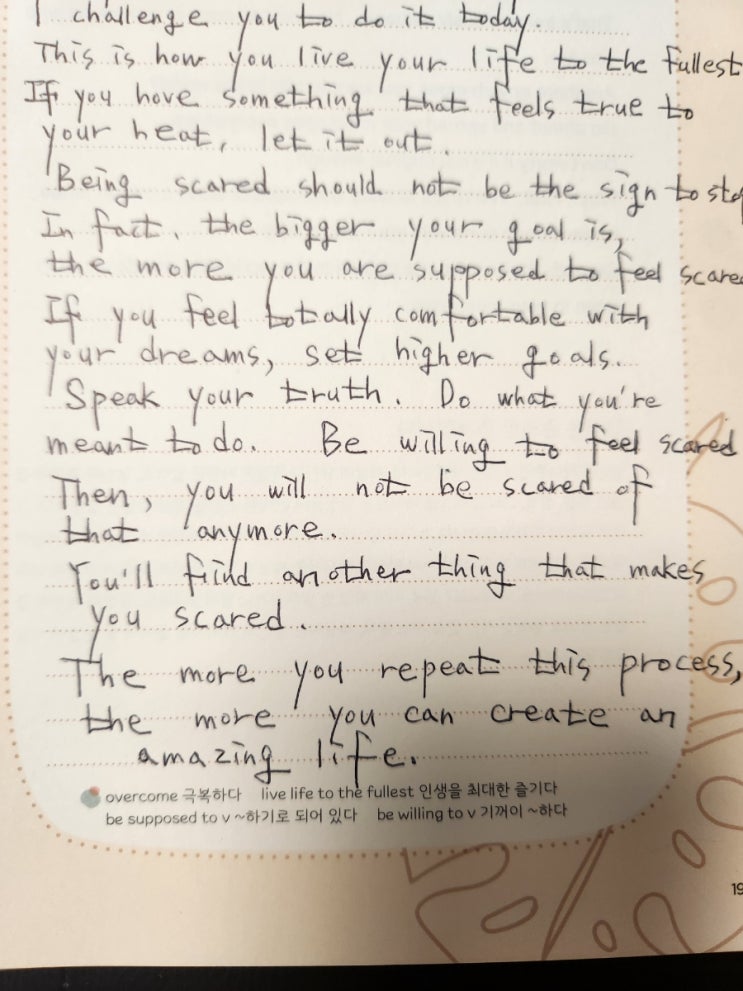 I challenge you to do it today.
This is how you live your life to the fullest
If you have something that feels true to
your heat, let it out.
Being scared should not be the sign to stop
In fact, the bigger your goal is,
the more you are supposed to feel scared
If you feel totally comfortable with
your dreams, set higher goals.
Speak your truth. Do what you're
meant to do. Be willing to feel scared
Then, you will not be scared of
that anymore.
You'll find another thing that makes
you scared.
The more you repeat this process,
the more you can create an
amazing life.
overcome 극복하다 live life to the fullest 인생을 최대한 즐기다
be supposed to v ~하기로 되어 있다 be willing to v 기꺼이 ~하다
19